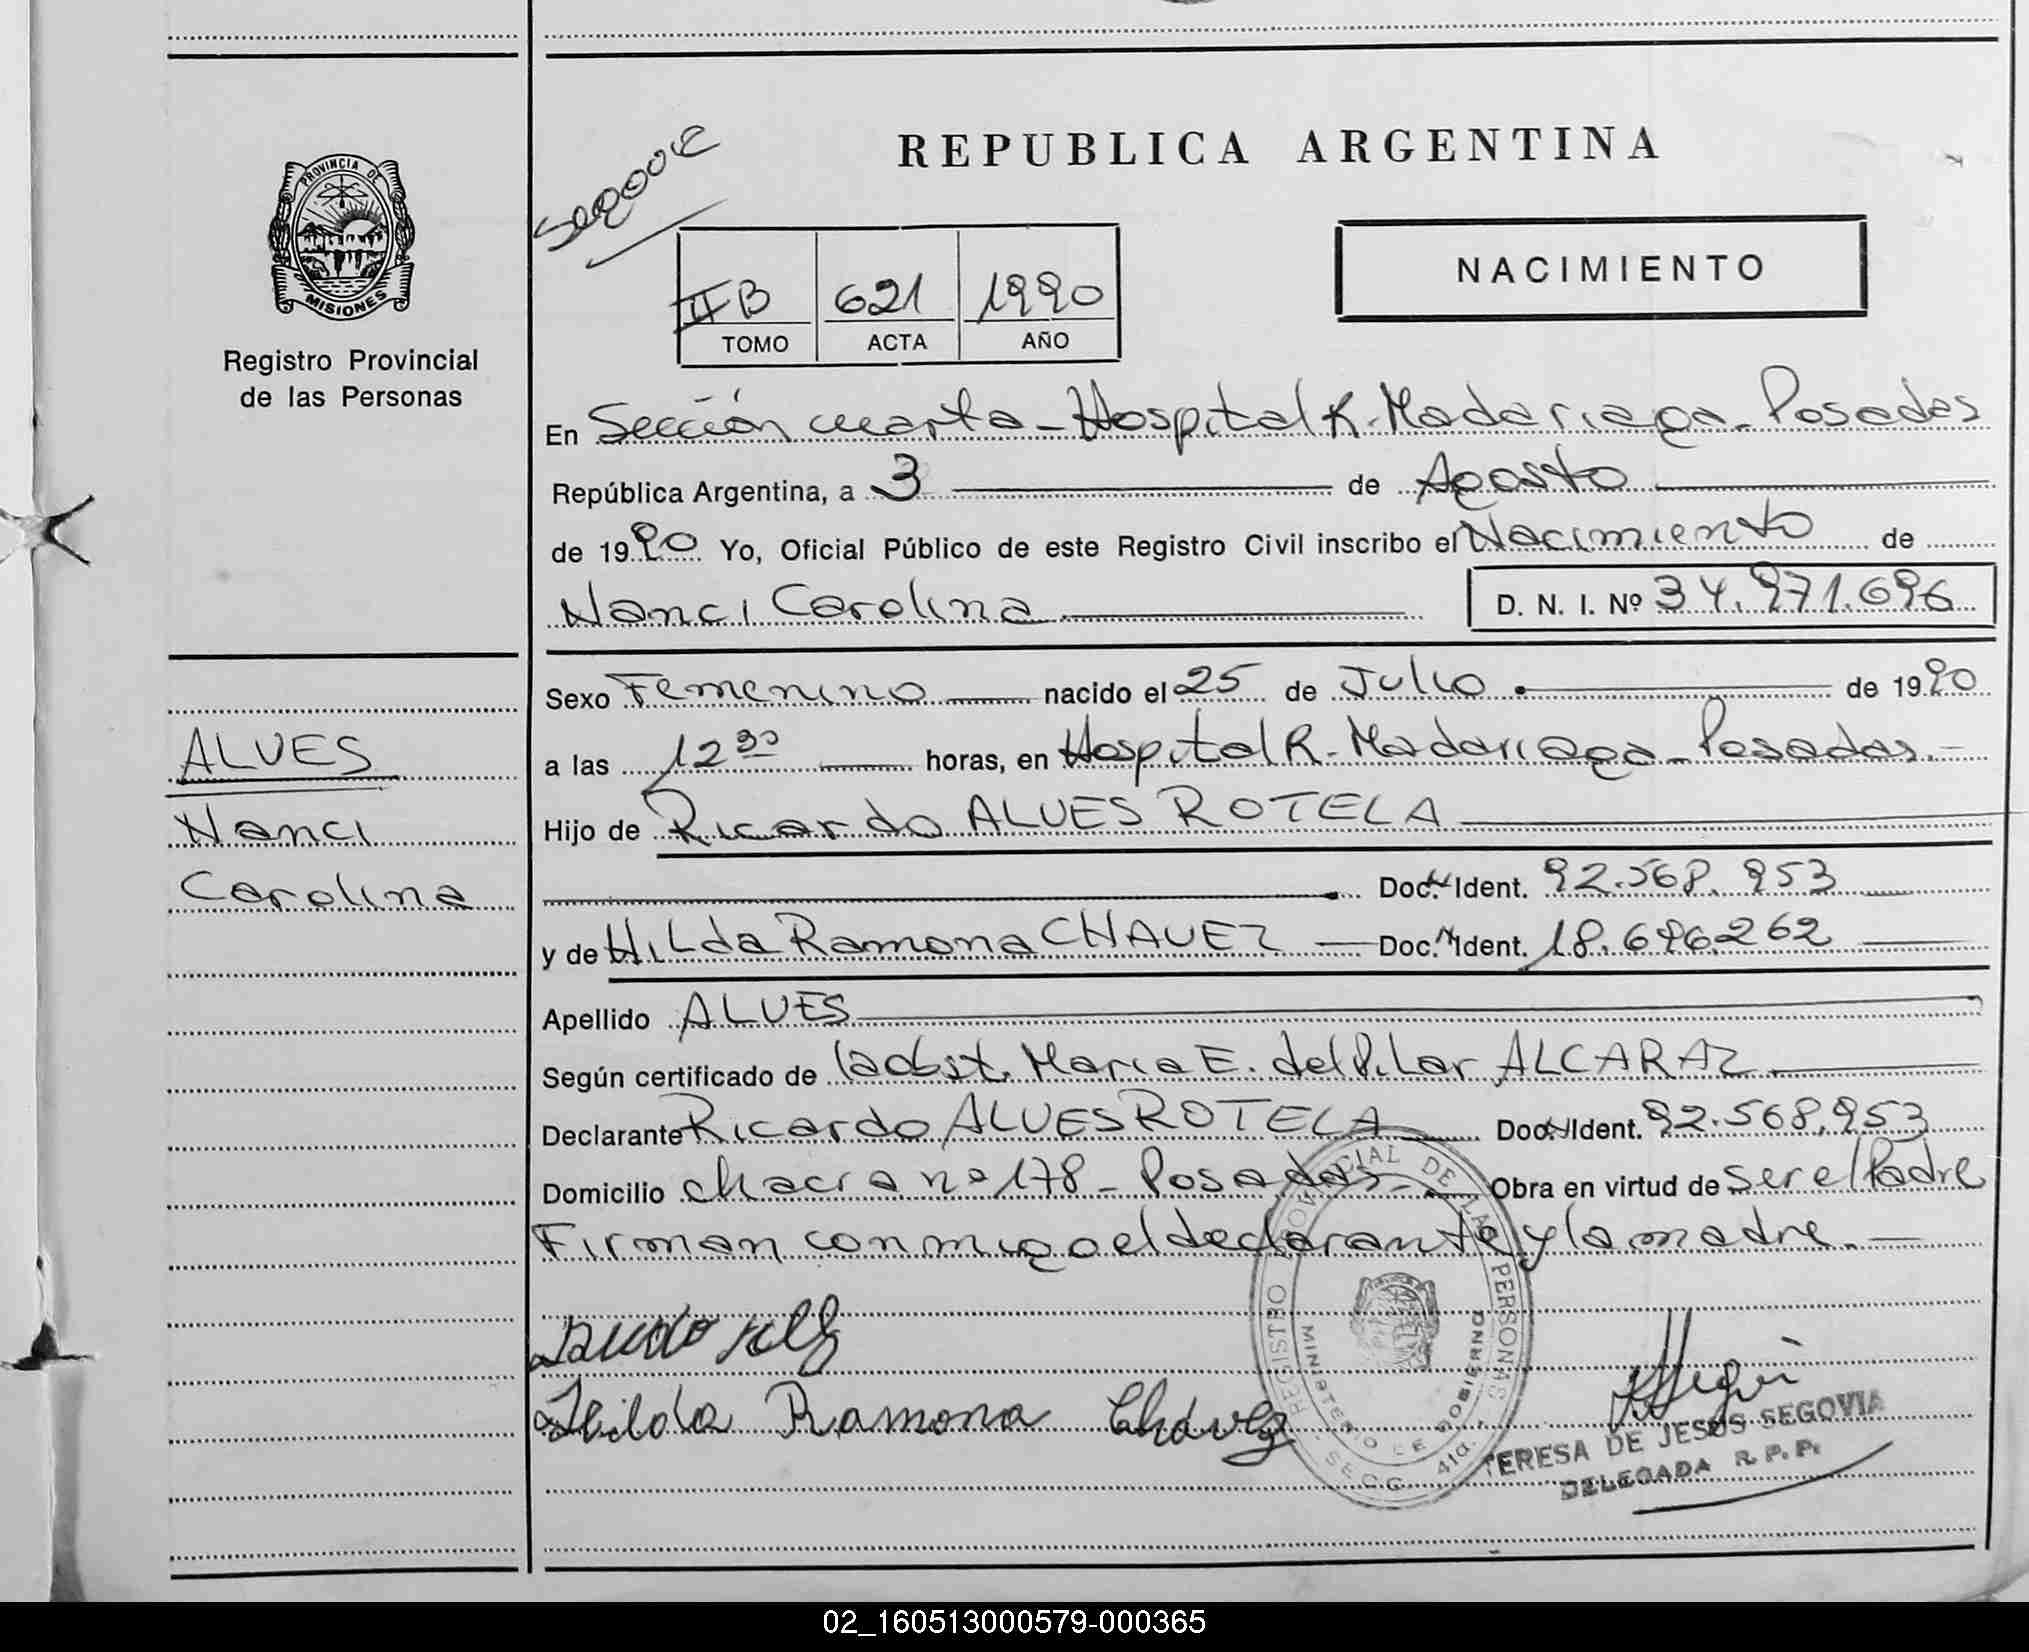 REPUBLICA ARGENTINA
PROVINCIA DE
MISIONES
Registro Provincial
de las Personas
NACIMIENTO
II B 621 1990
TOMO ACTA AÑO
En Sección cuarta - Hospital R. Madariaga - Posadas
República Argentina, a 3 de Agosto
de 1990 Yo, Oficial Público de este Registro Civil inscribo el Nacimiento de
Nanci Carolina D. N. I. Nº 34.971.696
Sexo Femenino nacido el 25 de Julio de 1990
a las 12 30 horas, en Hospital R. Madariaga - Posadas.-
ALVES
Nanci
Carolina
Hijo de Ricardo ALVES ROTELA
Doc. Ident. 92.568.953
y de Hilda Ramona CHAVEZ Doc. Ident. 18.696.262
Apellido ALVES
Según certificado de la obst. Maria E. del Pilar ALCARAZ
Declarante Ricardo ALVES ROTELA Doc. Ident. 92.568.953
Domicilio chacra nº 178 - Posadas - Obra en virtud de ser el Padre
Firman conmigo el declarante y la madre. -
Hilda Ramona Chávez
REGISTRO PROVINCIAL DE LAS PERSONAS
MINISTERIO DE GOBIERNO
SECC. 4ta.
TERESA DE JESUS SEGOVIA
DELEGADA R. P. P.
02_160513000579-000365